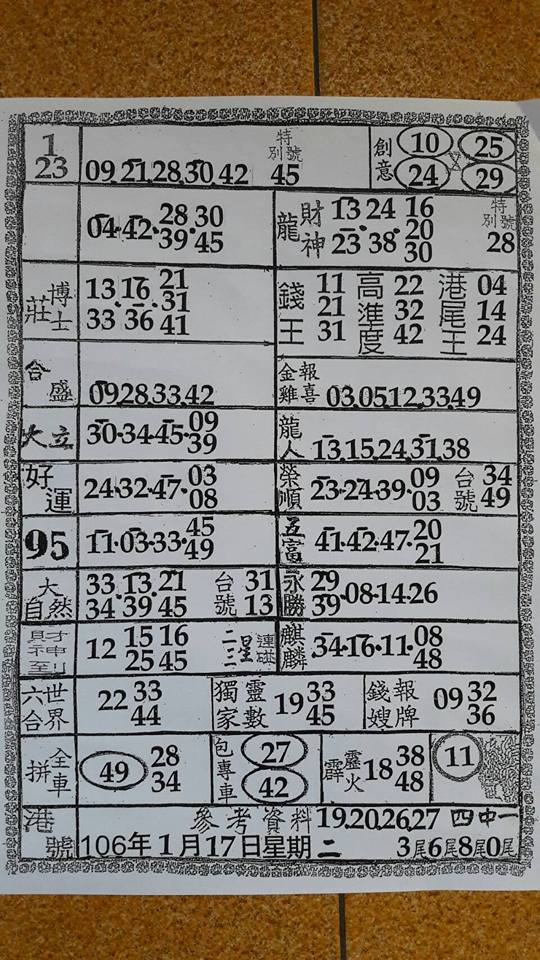 1
23
09.21.28.30.42
特別號
45
創意
10 25
24 29
04.42.
28 30
39.45
龍
財神
13 24 16
23.38.20
30
特別號
28
莊
博士
13.16.21
31
33 36 41
錢王
11
21
31
高準度
22
32
42
港尾王
04
14
24
合盛
09.28.33.42
金雞報喜
03.05.12.33.49
大立
30.34.45.09
39
龍人
13.15.24.31.38
好運
24.32.47.03
08
榮順
23.24.39.09
03
台號
34
49
95
11.03.33.45
49
五富
41.42.47.20
21
大自然
33.13.21
34 39 45
台號
31
13
永勝
29
39.08.14.26
財神到
12
15 16
25 45
二三星
連碰
麒麟
34.16.11.08
48
六合
世界
22
33
44
獨家
靈數
19
33
45
錢嫂
報牌
09
32
36
拼
全車
49
28
34
包專車
27
42
霹靂火
18
38
48
11
港號
參考資料
19.20.26.27 四中一
106年1月17日星期二
3尾6尾8尾0尾